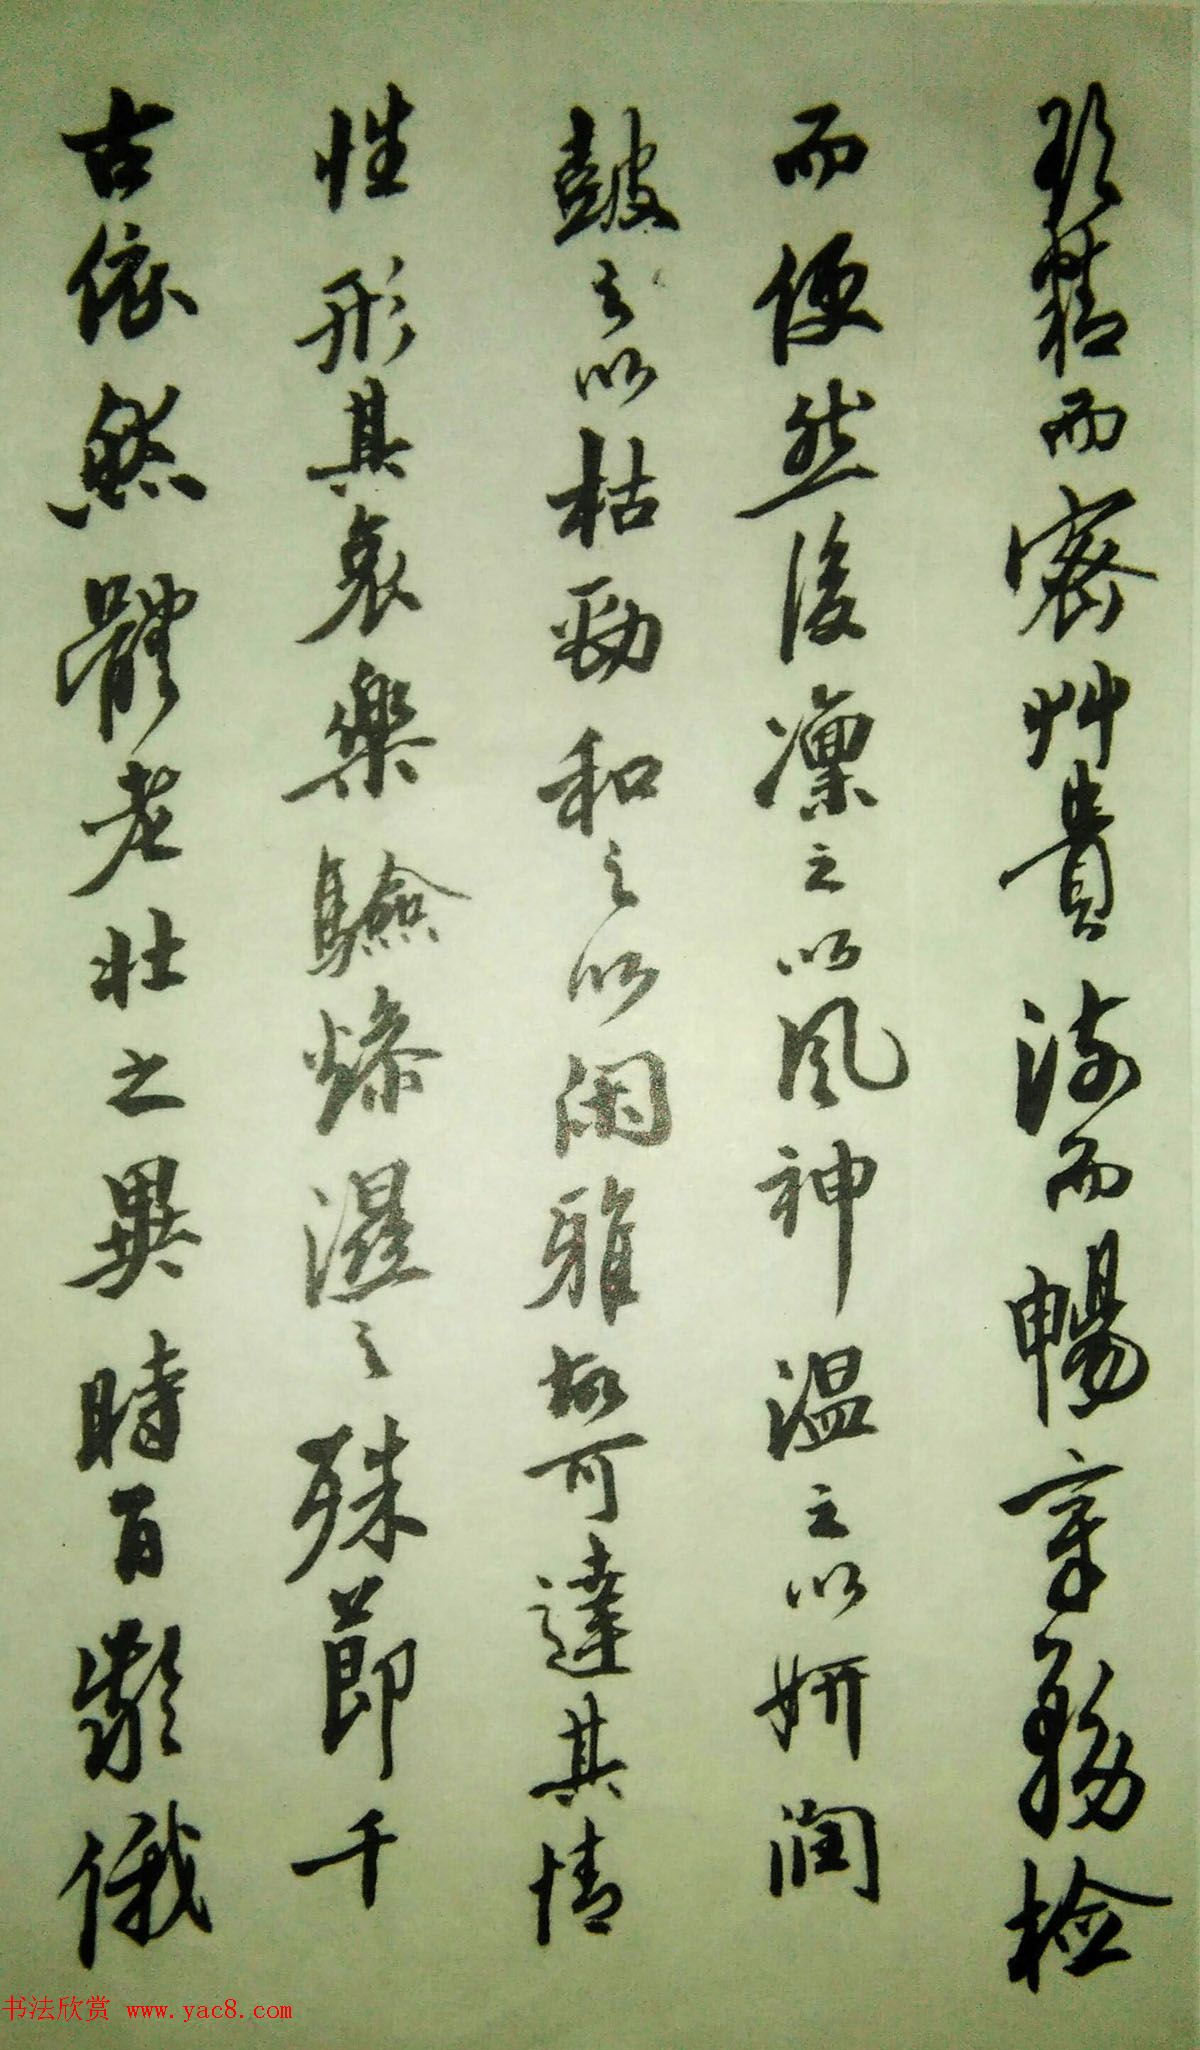 欲精而密艸貴流而暢章務檢
而便然後凜之以風神温之以妍潤
鼓之以枯勁和之以閑雅故可達其情
性形其哀樂驗燥濕之殊節千
古依然體老壯之異時百齡俄
书法欣赏 www.yac8.com